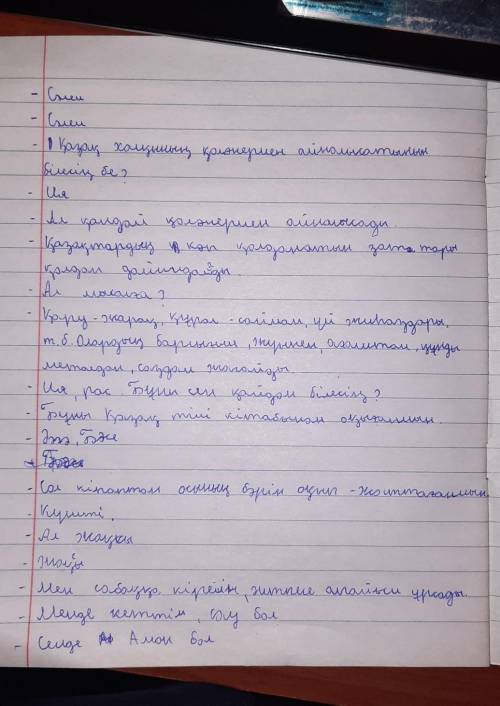 - Сәлем
- Сәлем
- Қазақ халқының қолөнермен айналысатынын
білесің бе?
- Ия
- Ал қандай қолөнермен айналысады.
- Қазақтардың көп қолданатын заттары
қолдан дайындалады.
- Ал мысалға?
- Қару-жарақ, құрал-сайман, үй жиһаздары,
т.б. Олардың барлығын, жүннен, ағаштан, құнды
металдан, саздан жасайды.
- Ия, рас. Бұны сен қайдан білесің?
- Бұны Қазақ тілі кітабынан оқығанмын.
- Әээ, Бәсе
- Сол кітаптан осының бәрін оқып-жаттағанмын
- Күшті.
- Ал жақсы
- Жақсы
- Мен сабаққа кірейін, әйтпесе апайың ұрсады.
- Менде кеттім, сау бол
- Сенде Аман бол